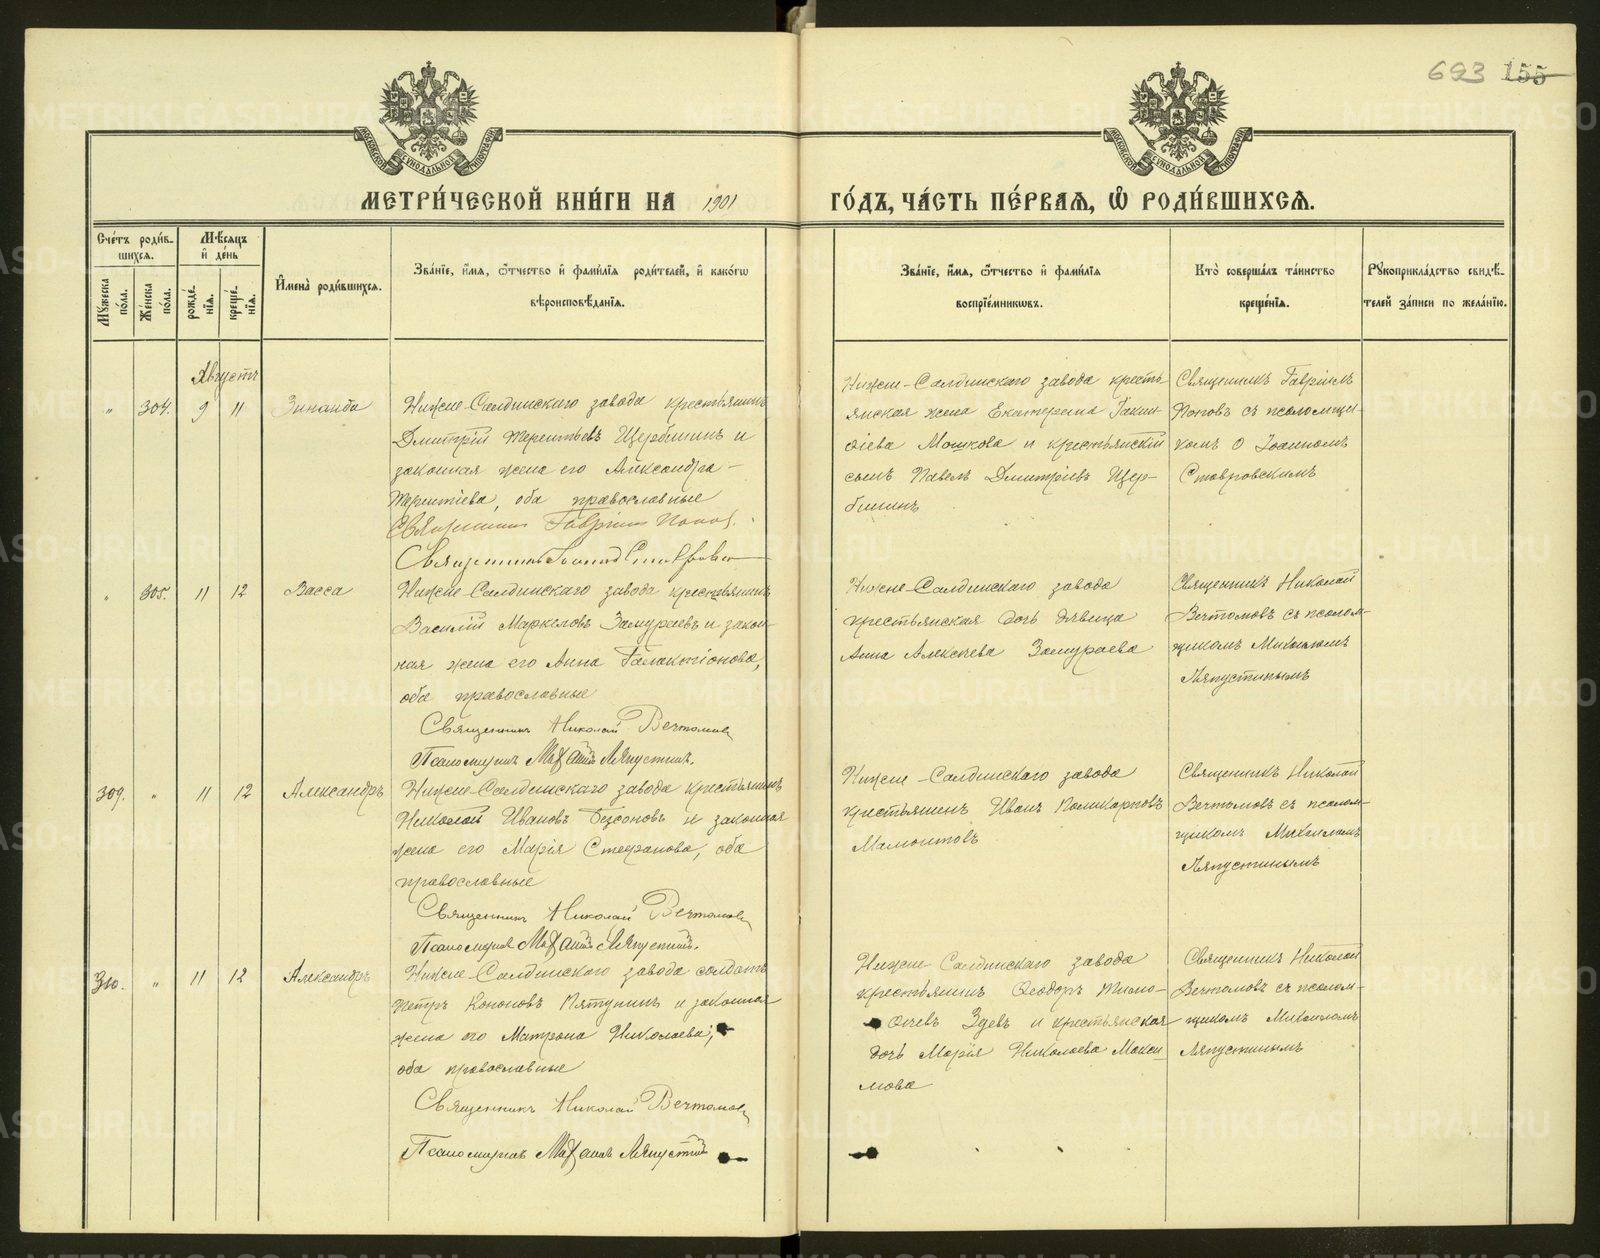 693 155
МОСКОВСКОЙ СѴНОДАЛЬНОЙ ТИПОГРАФІИ
МОСКОВСКОЙ СѴНОДАЛЬНОЙ ТИПОГРАФІИ
МЕТРИ́ЧЕСКОЙ КНИ́ГИ НА 1901 ГО́ДЪ, ЧА́СТЬ ПЕ́РВАѦ, Ѡ҆ РОДИ́ВШИХСѦ.
Счетъ роди́в-
шихсѧ.
Мꙋжеска
по́ла.
Же́нска
по́ла.
Мѣ́сѧцъ
и҆ де́нь
рожде́-
нїѧ.
креще́-
нїѧ.
И҆мена̀ роди́вшихсѧ.
Зва́нїе, и҆́мѧ, ѻ҆́тчество и҆ фами́лїѧ роди́телей, и҆ како́гѡ
вѣроисповѣ́данїѧ.
Зва́нїе, и҆́мѧ, ѻ҆́тчество и҆ фами́лїѧ
воспрїе́мникѡвъ.
Кто̀ соверша́лъ та́инство
креще́нїѧ.
Рꙋкоприкла́дство свидѣ́-
телей за́писи по жела́нїю.
Августъ
" 304. 9 11 Зинаида
Нижне-Салдинскаго завода крестьянинъ
Дмитрій Терентьевъ Щербининъ и
законная жена его Александра
Терентіева, оба православные
Священникъ Гавріилъ Попов.
Священникъ Іоаннъ Ставровскій
Нижне-Салдинскаго завода кресть-
янская жена Екатерина Гакин-
фіева Мошкова и крестьянскій
сынъ Павелъ Дмитріевъ Щер-
бининъ
Священникъ Гавріилъ
Поповъ съ псаломщи-
комъ о Іоанномъ
Ставровскимъ
" 305. 11 12 Васса
Нижне-Салдинскаго завода крестьянинъ
Василій Маркеловъ Замураевъ и закон-
ная жена его Анна Галактіонова,
оба православные
Священникъ Николай Вечтомовъ
Псаломщикъ Михаилъ Ляпустинъ.
Нижне-Салдинскаго завода
крестьянская дочь дѣвица
Анна Алексѣева Замураева
Священникъ Николай
Вечтомовъ съ псалом-
щикомъ Михаиломъ
Ляпустинымъ
309. " 11 12 Александръ
Нижне-Салдинскаго завода крестьянинъ
Николай Ивановъ Безсоновъ и законная
жена его Марія Стефанова, оба
православные
Священникъ Николай Вечтомовъ
Псаломщикъ Михаилъ Ляпустинъ.
Нижне-Салдинскаго завода
крестьянинъ Иванъ Поликарповъ
Мамонтовъ
Священникъ Николай
Вечтомовъ съ псалом-
щикомъ Михаиломъ
Ляпустинымъ
310. " 11 12 Александръ
Нижне-Салдинскаго завода солдатъ
Петръ Кононовъ Пятунинъ и законная
жена его Матрона Николаева;
оба православные
Священникъ Николай Вечтомовъ
Псаломщикъ Михаилъ Ляпустинъ
Нижне-Салдинскаго завода
крестьянинъ Ѳеодоръ Тимо-
ѳеевъ Зуевъ и крестьянская
дочь Марія Николаева Макси-
мова
Священникъ Николай
Вечтомовъ съ псалом-
щикомъ Михаиломъ
Ляпустинымъ
METRIKI.GASO-URAL.RU